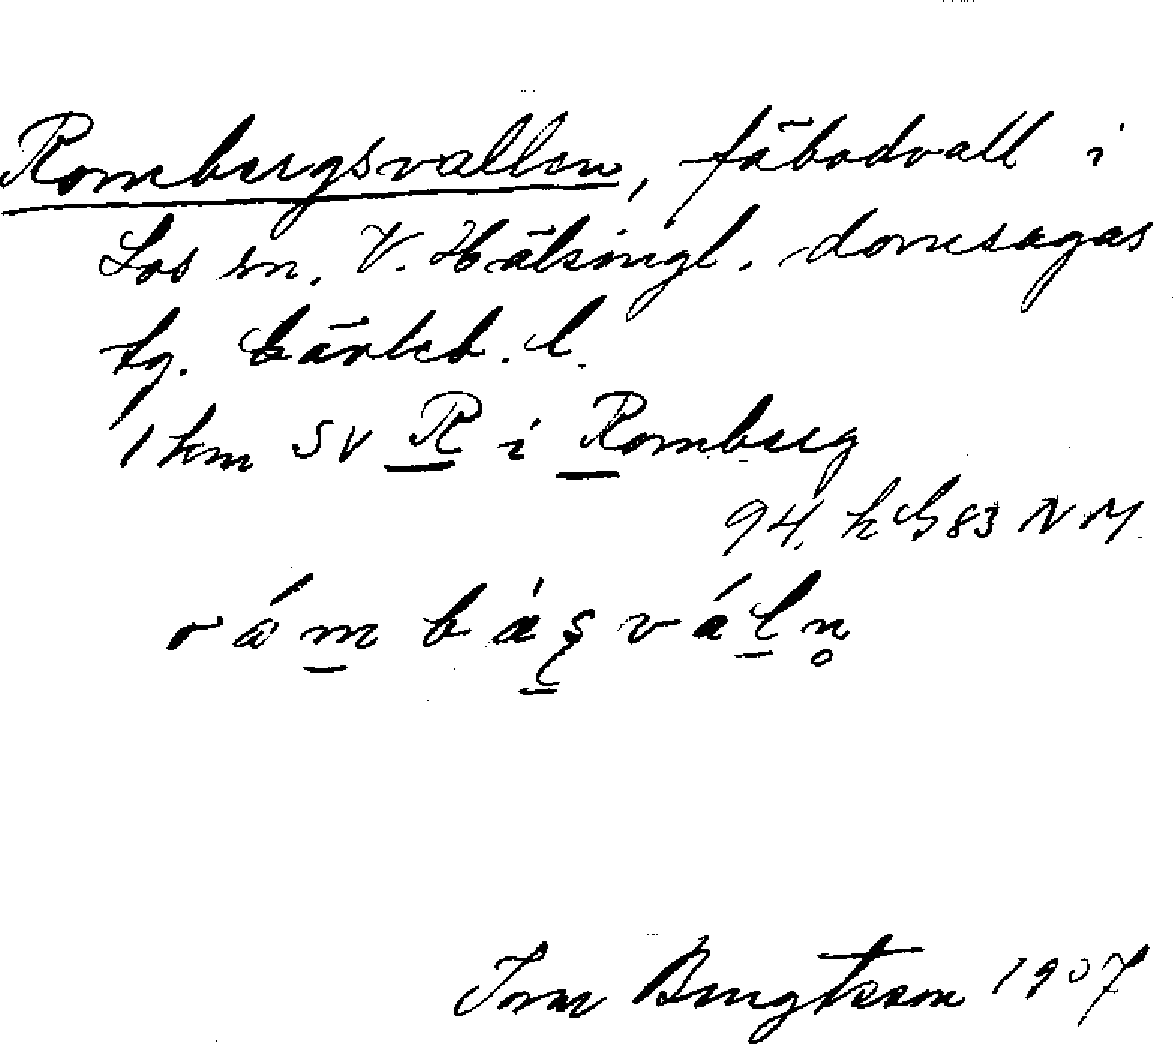 Rombergsvallen, fäbodvall i
Los sn. V. Hälsingl. domsagas
tg. Gävleb. l.
1 km SV R i Romberg
94. h G 83 NM
råmbàʂvál̠n̥
Torn Bengtsson 1907